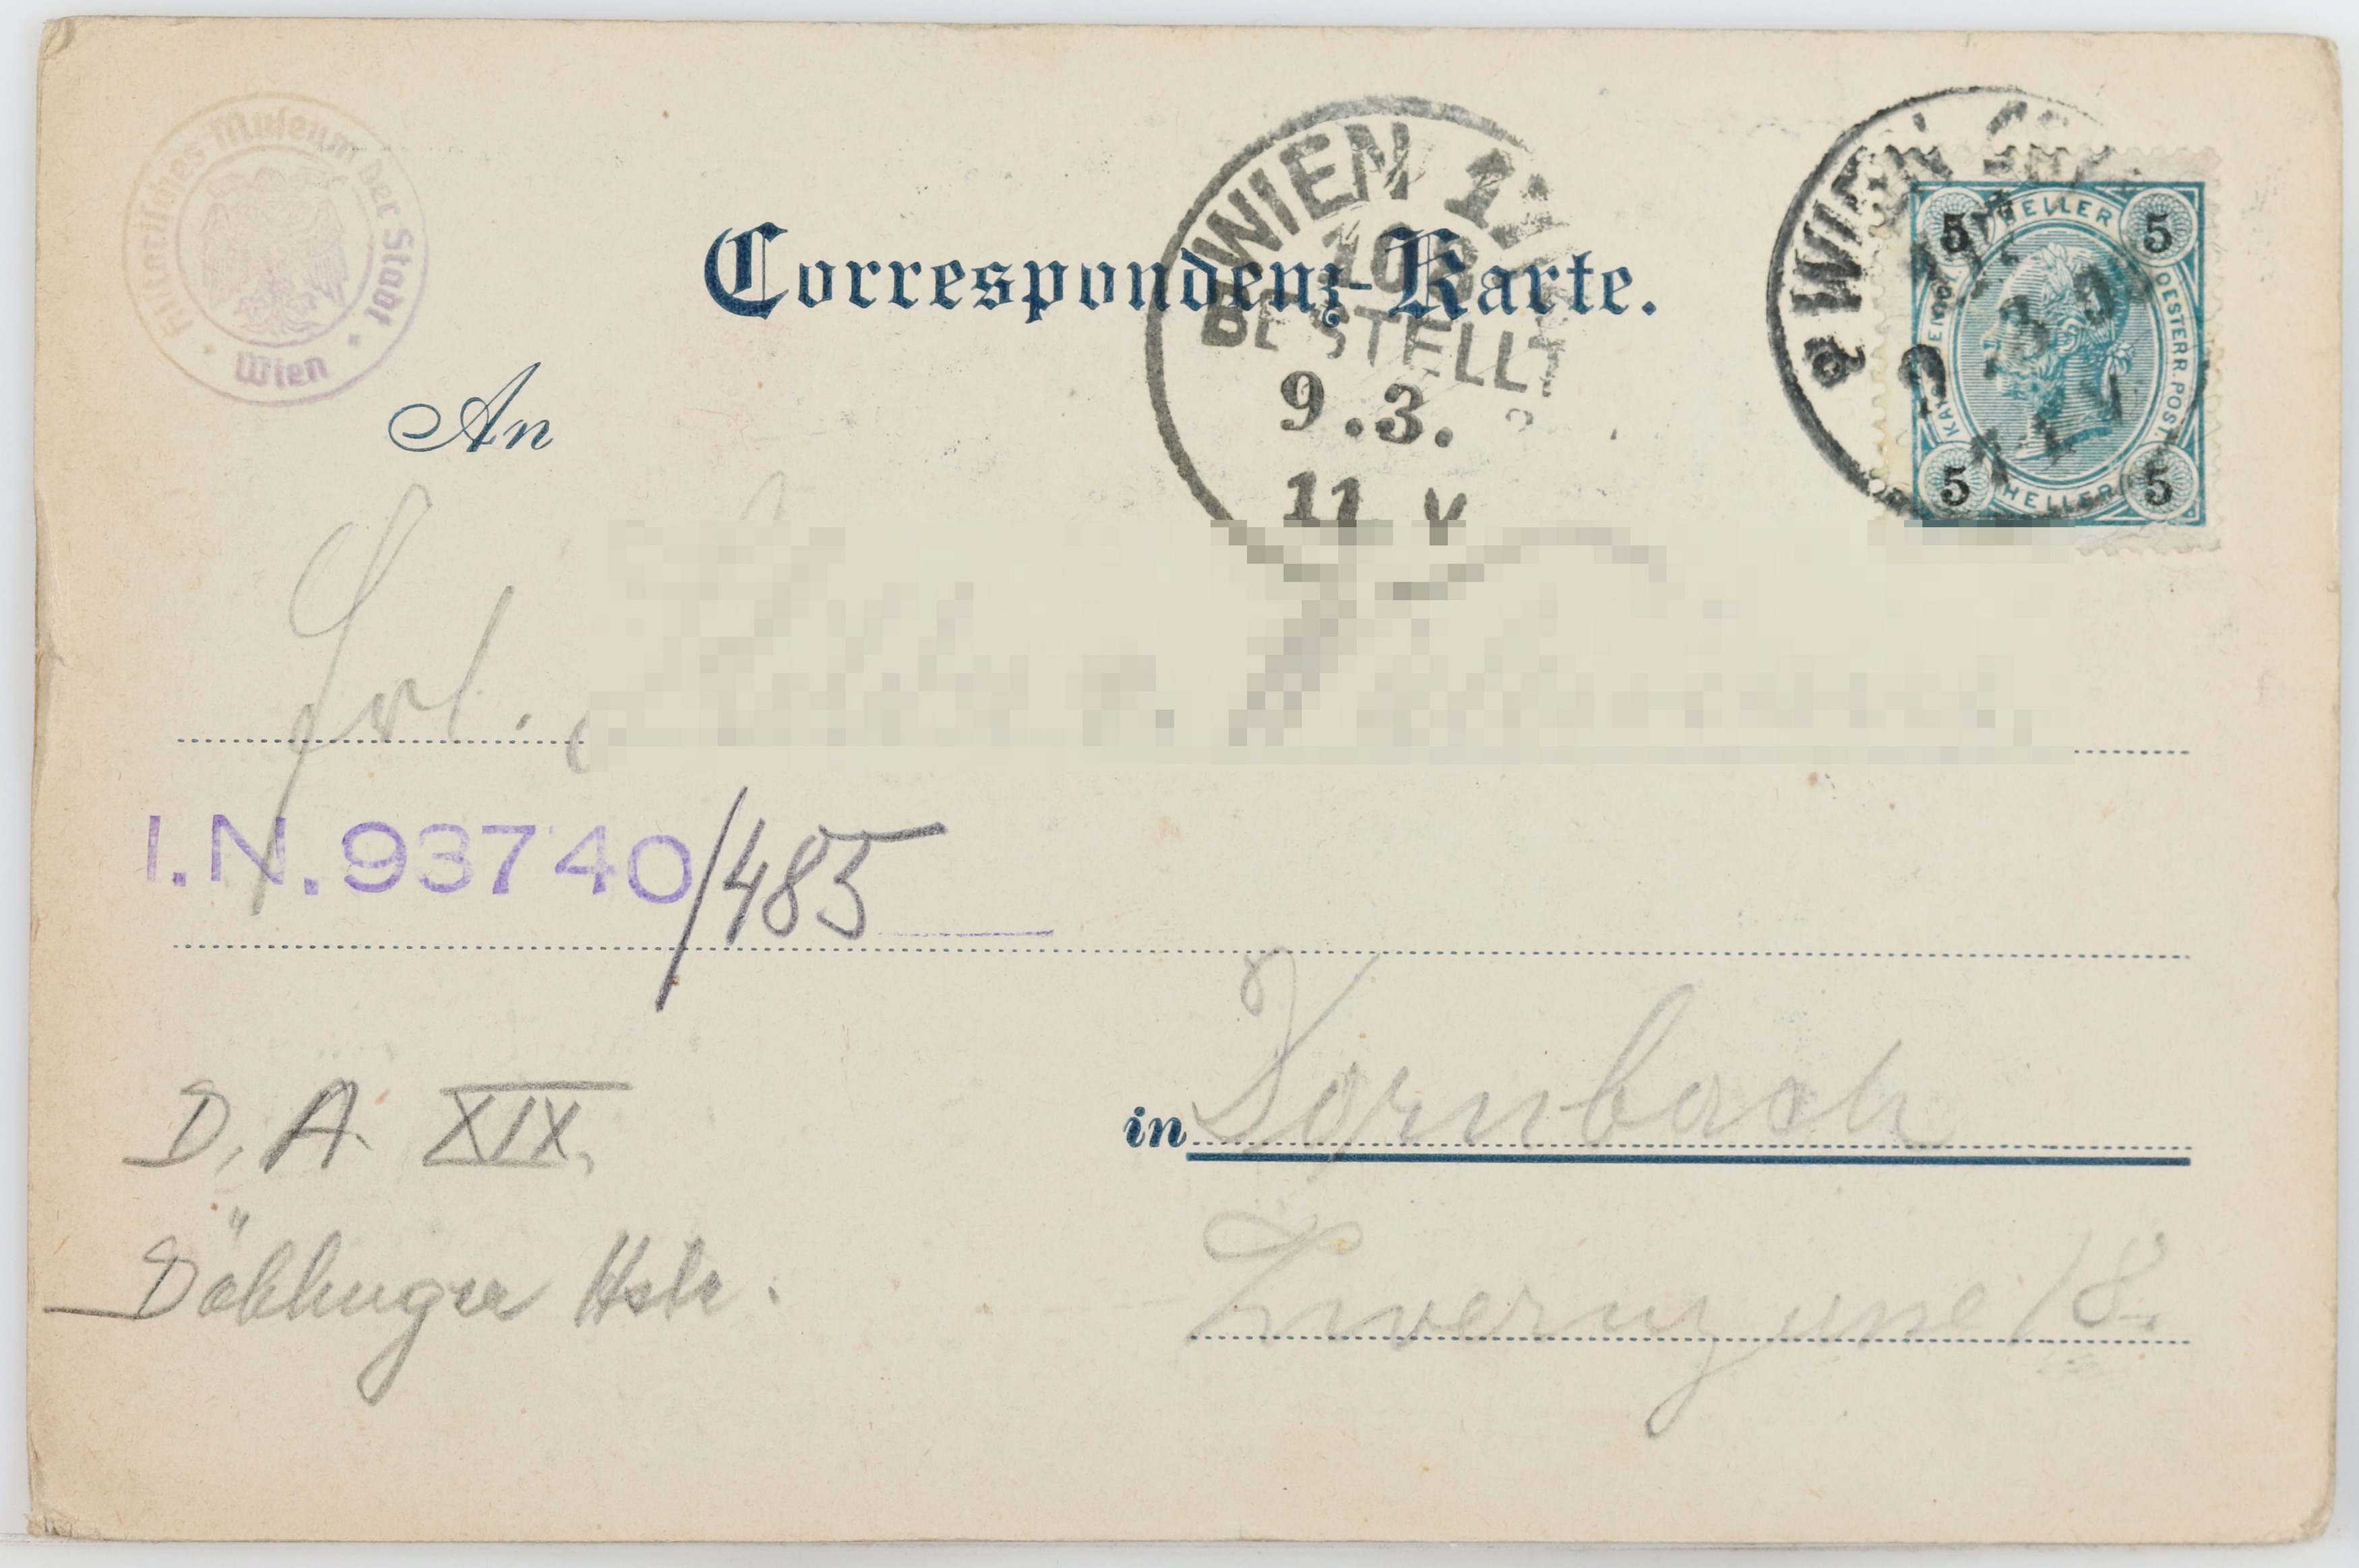 Historisches Museum der Stadt
Wien
Correspondenz-Karte.
WIEN
BESTELLT
9.3.
11 V
WIEN
9 3 0
11 V
5 HELLER 5
OESTERR. POST.
5 HELLER 5
An
Frl.
I.N. 93740/485
in Dornbach
18.
D. A XIX.
Döblinger Hstr.